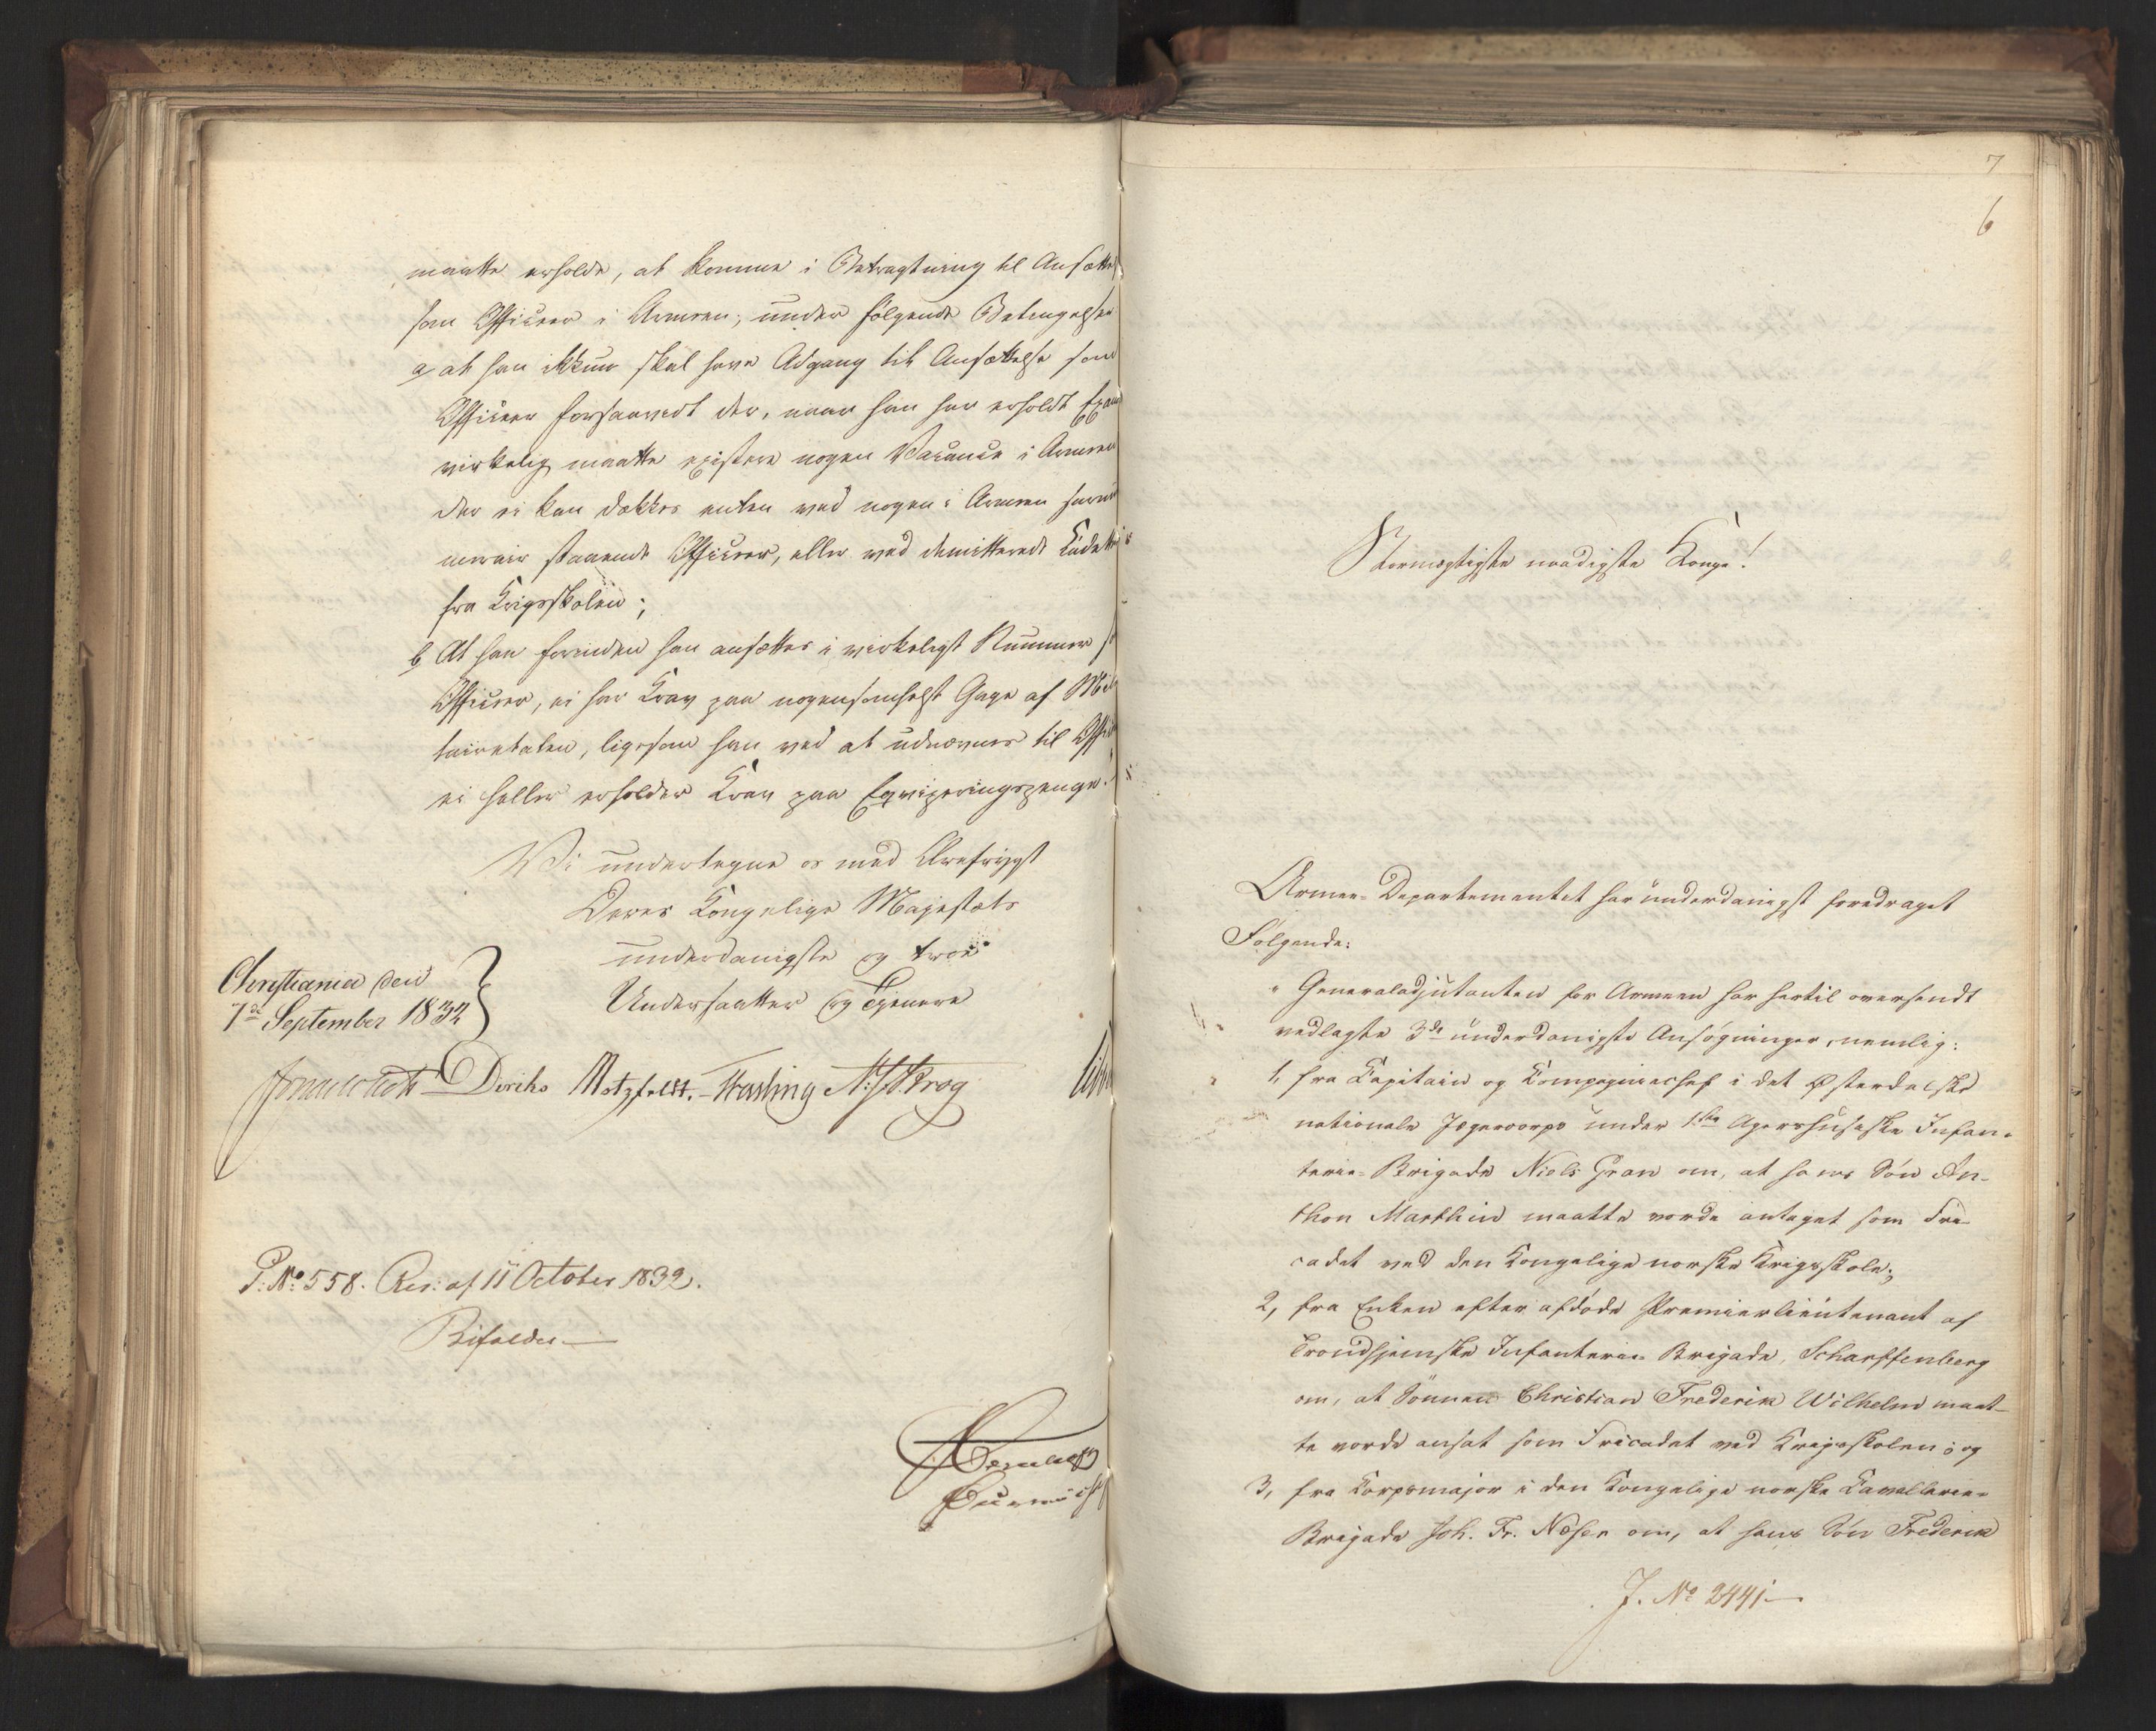 maatte erholde, at komme i Betragtning til Ansættel
som Officeer i Armeen, under følgende Betingelser
a, at han ikkun skal have Adgang til Ansættelse som
Officeer forsaavidt der, naar han har erholdt Exam
virkelig maatte existere nogen Vacance i Armeen
der ei kan dækkes enten ved nogen i Armeen
staaende Officeer, eller ved dimitterede Cadette
fra Krigsskolen;
b, At han forinden han ansættes i virkeligt Nummer
Officeer, ei har Krav paa nogensomhelst Gage af Mili
tairetaten, ligesom han ved at udnævnes til Offi
ei heller erholder Krav paa Eqviperingspenge.
Vi undertegne os med Ærefrygt
Deres Kongelige Majestæts
underdanigste og troe
Undersaatter og Tjenere
Christiania den
7de September 1832
Diriks Motzfeldt. Krog
P: No 558. Res: af 11 October 1832.
Bifaldes
7
6
Stormægtigste naadigste Konge!
Armee-Departementet har underdanigst foredraget
Følgende:
" Generaladjutanten for Armeen har hertil oversendt
vedlagte 3de underdanigste Ansøgninger, nemlig:
1, fra Capitain og Compagniechef i det Østerdalske
nationale Jægercorps under 1ste Agershusiske Infan-
terie-Brigade Niels Gran om, at hans Søn An-
thon Marthin maatte vorde antaget som Fri-
cadet ved den Kongelige norske Krigsskole;
2, fra Enken efter afdøde Premierlieutenant af
Trondhjemske Infanterie-Brigade, Scharffenberg
om, at Sønnen Christian Frederik Wilhelm maat-
te vorde ansat som Fricadet ved Krigsskolen; og
3, fra Corpsmajor i den Kongelige norske Cavallerie-
Brigade Joh. Fr. Neser om, at hans Søn Frederik
J. No 2441